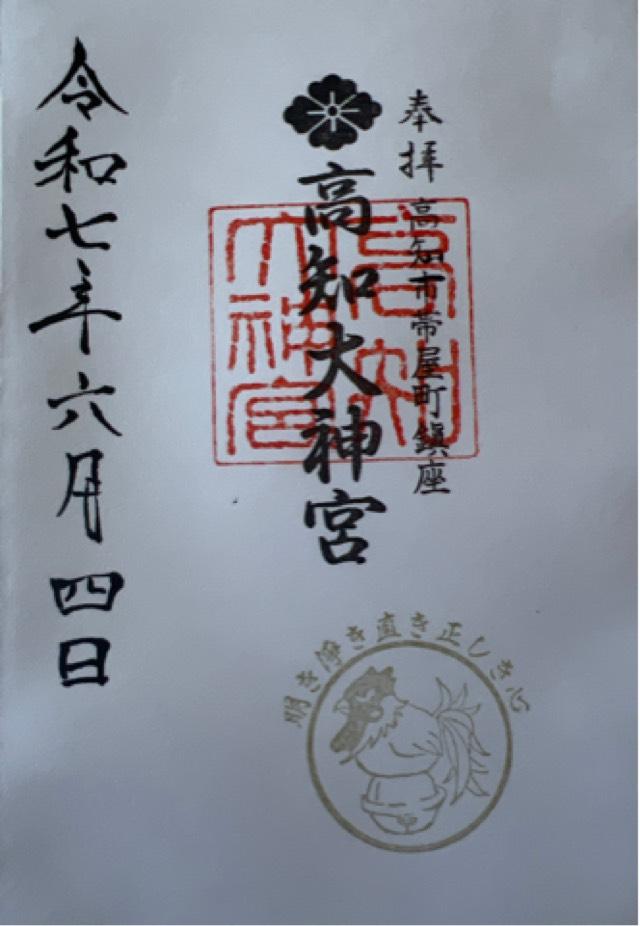 奉拝 高知市帯屋町鎮座
高知大神宮
高知大神宮
令和七年六月四日
明き浄き直き正しき心